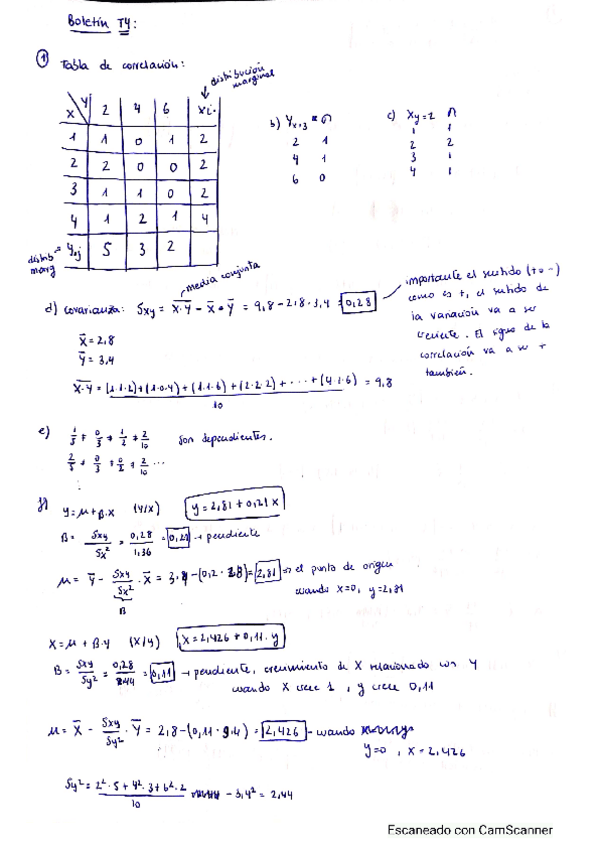 Boletín T4:
① Tabla de correlación:
distribución marginal
X Y 2 4 6 xi·
1 1 0 1 2
2 2 0 0 2
3 1 1 0 2
4 1 2 1 4
distrib marg = y·j 5 3 2
b) Yx=3 n
2 1
4 1
6 0
c) Xy=2 n
1 1
2 2
3 1
4 1
media conjunta
d) covarianza: Sxy = X·Y - X • Y = 9,8 - 2,8 · 3,4 = 0,28
importante el sentido (+ o -)
como es +, el sentido de
la variación va a ser
creciente. El signo de la
correlación va a ser +
también.
X = 2,8
Y = 3,4
X·Y = (1·1·2)+(1·0·4)+(1·1·6)+(2·2·2)+···+(4·1·6) = 9,8
10
e) 1/5 ≠ 0/3 ≠ 1/2 ≠ 2/10 son dependientes.
2/5 ≠ 0/3 ≠ 0/2 ≠ 2/10 ...
f) Y = μ + B·X (Y/X) y = 2,81 + 0,21 x
B = Sxy/Sx² = 0,28/1,36 = 0,21 → pendiente
μ = Y - Sxy/Sx² · X = 3,4 - (0,2 · 2,8) = 2,81 => el punto de origen
B
cuando x=0, y=2,81
X = μ + B·Y (X/Y) X = 2,426 + 0,11 · y
B = Sxy/Sy² = 0,28/2,44 = 0,11 → pendiente, crecimiento de X relacionado con Y
cuando X crece 1, y crece 0,11
μ = X - Sxy/Sy² · Y = 2,8 - (0,11 · 3,4) = 2,426 - cuando
y=0, X = 2,426
Sy² = 2²·5 + 4²·3 + 6²·2 - 3,4² = 2,44
10
Escaneado con CamScanner